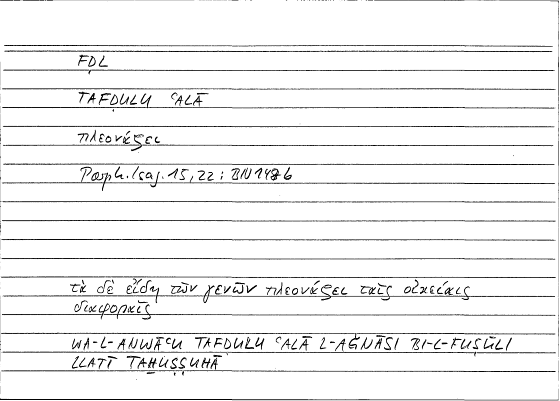 FḌL
TAFḌULU ʿALĀ
πλεονάζει
Porph. Isag. 15,22 : BN 148b
τὰ δὲ εἴδη τῶν γενῶν πλεονάζει ταῖς οἰκείαις
διαφοραῖς
WA-L-ANWĀʿU TAFḌULU ʿALĀ L-AǦNĀSI BI-L-FUṢŪLI
LLATĪ TAḪUṢṢUHĀ